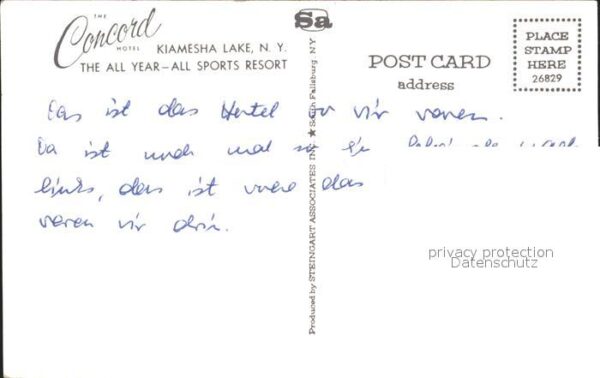 THE
Concord
HOTEL
KIAMESHA LAKE, N. Y.
THE ALL YEAR—ALL SPORTS RESORT
Sa
POST CARD
address
PLACE
STAMP
HERE
26829
Das ist das Hotel wo wir waren.
Da ist noch mal so
links, das ist wo das
waren wir drin.
Produced by STEINGART ASSOCIATES INC ★ South Fallsburg NY
privacy protection
Datenschutz